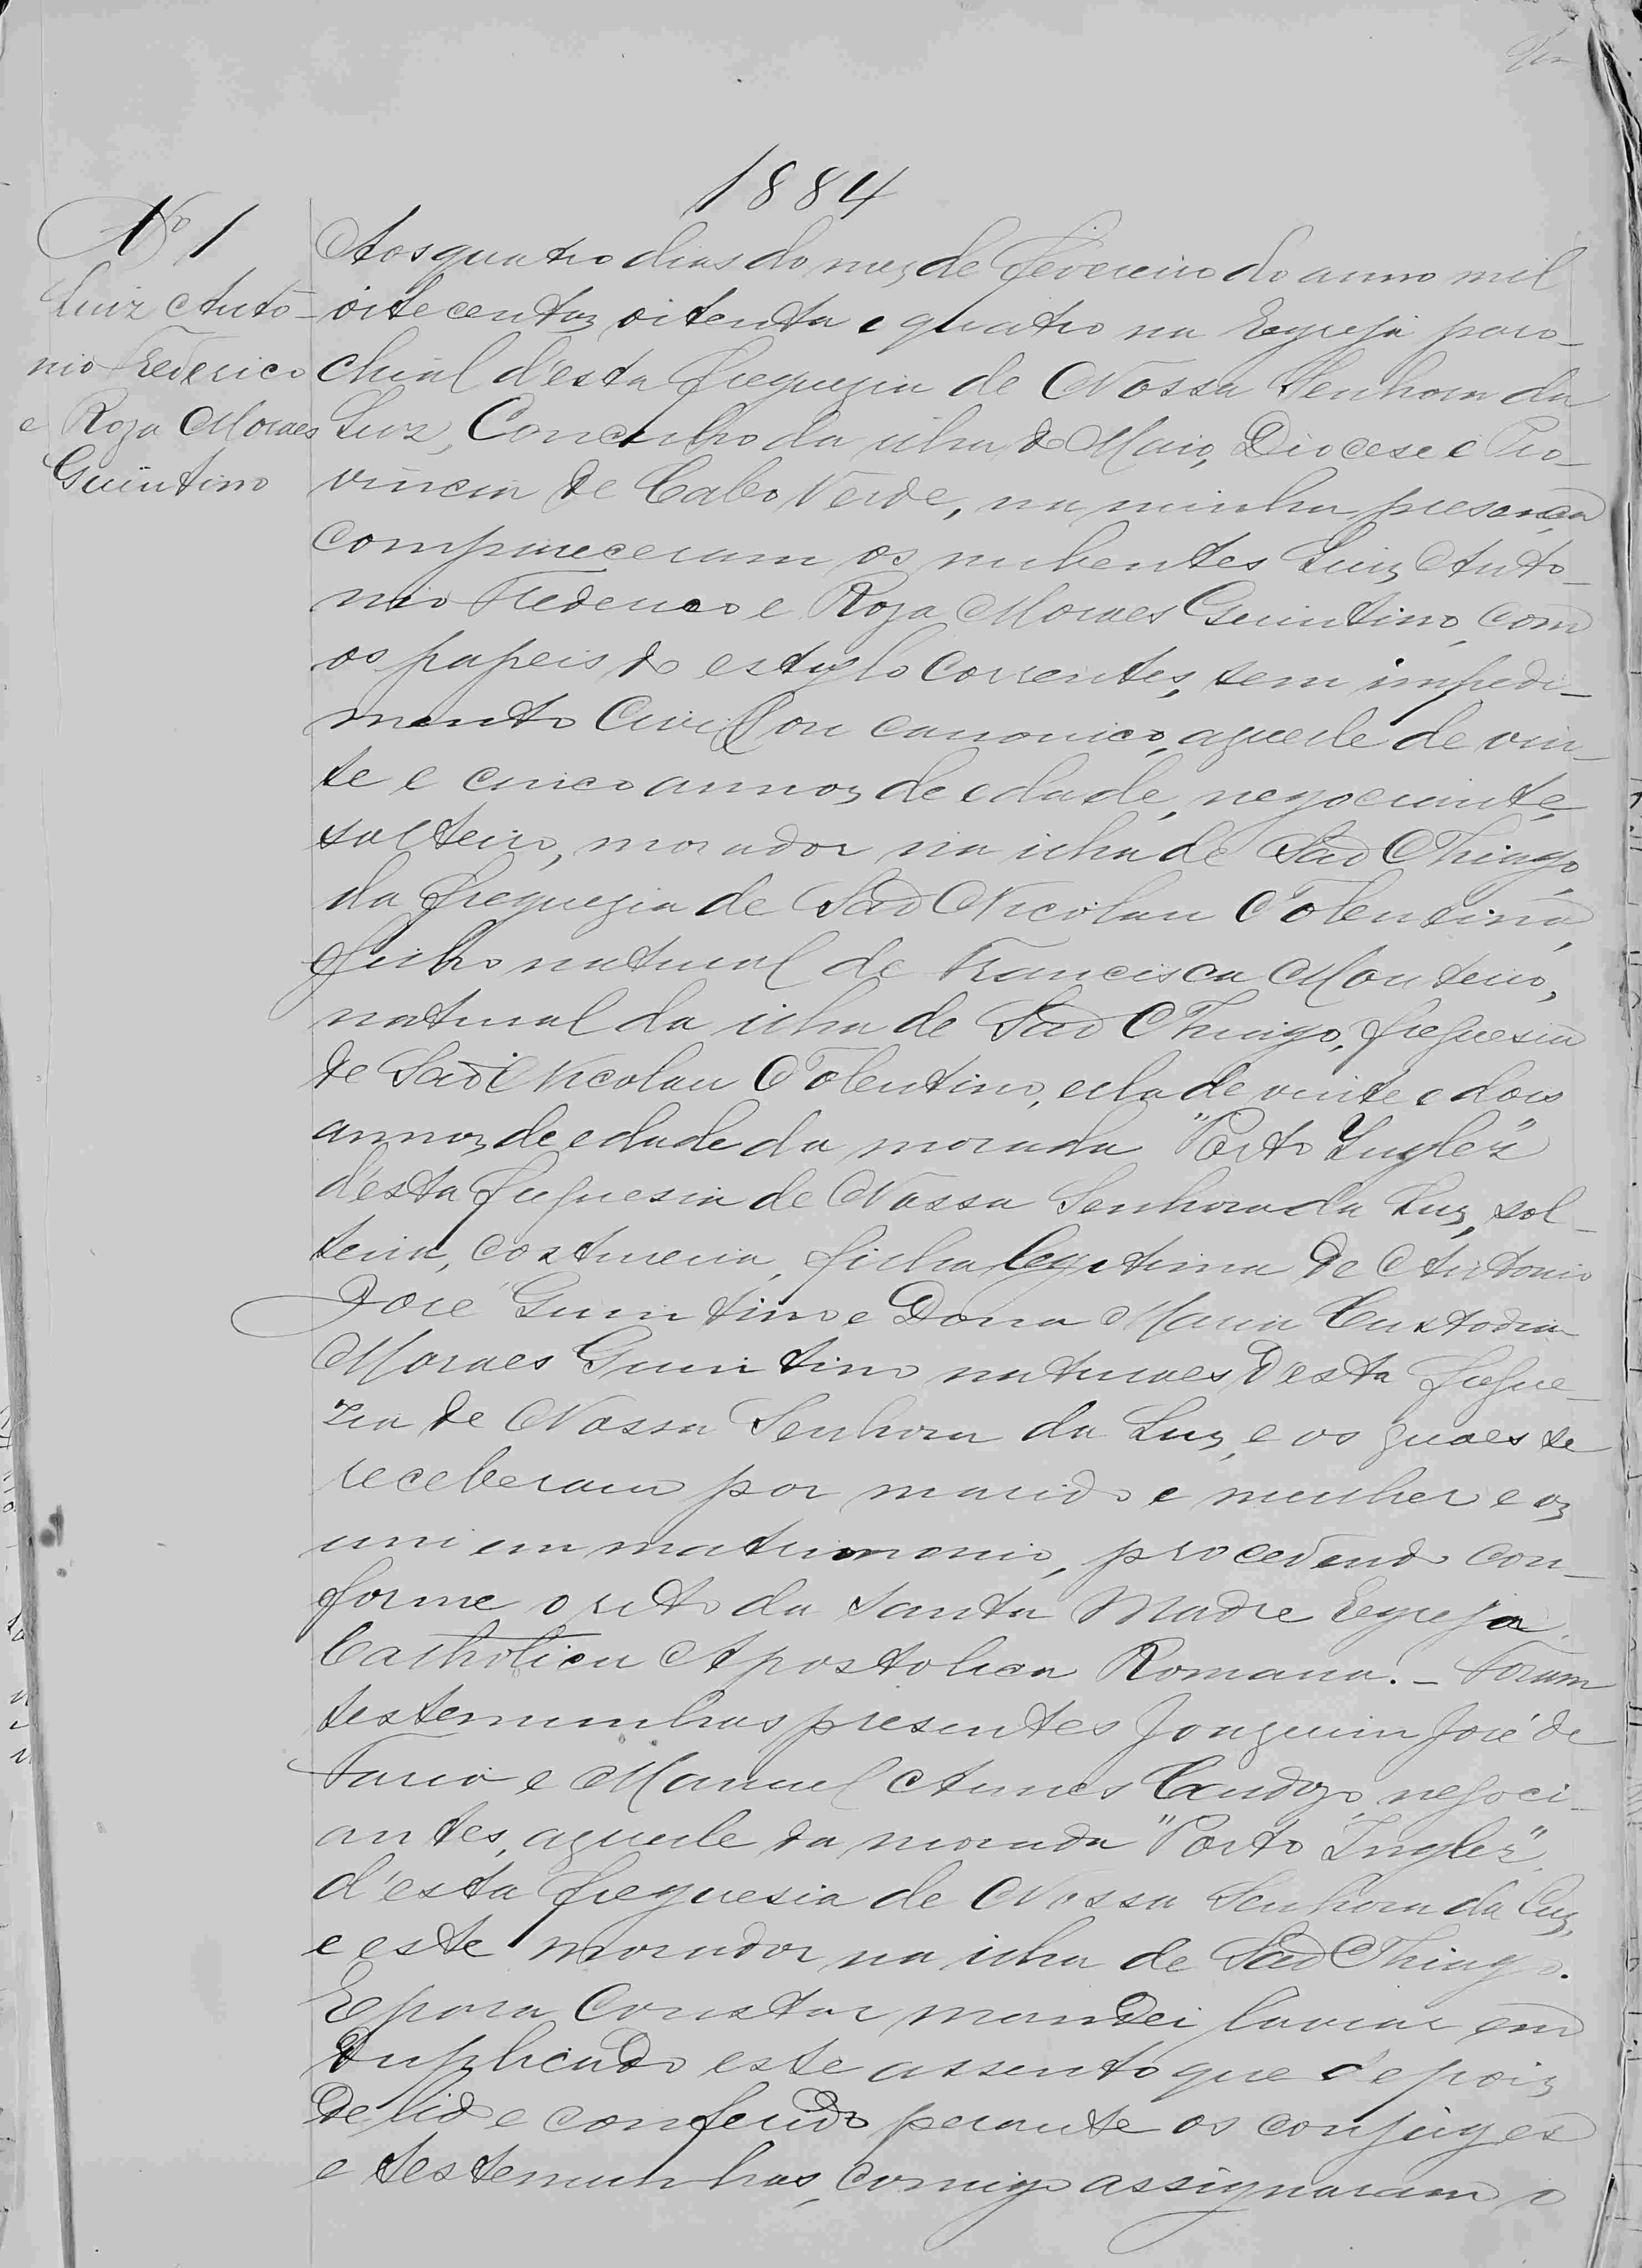 1884
Nº 1
Luiz Anto-
nio Frederico
e Roza Moraes
Guintino
Aos quatro dias do mez de Fevereiro do anno mil
oitecentos oitenta e quatro na Egreja paro-
chial d'esta freguezia de Nossa Senhora da
Luz, Concelho da ilha do Maio, Diocese e Pro-
vincia de Cabo Verde, na minha presença
compareceram os nubentes Luiz Anto-
nio Frederico e Roza Moraes Guintino, com
os papeis do estylo correntes, sem impedi-
mento civil ou canonico, aquelle de vin-
te e cinco annos de edade, negociante,
solteiro, morador na ilha de São Thiago,
da freguezia de São Nicolau Tolentino,
filho natural de Francisca Monteiro,
natural da ilha de São Thiago, freguesia
de São Nicolau Tolentino, ella de vinte e dois
annos de edade da morada "Porto Inglez"
d'esta freguesia de Nossa Senhora da Luz, sol-
teira, costureira, filha legitima de Antonio
José Guintino e Dona Maria Custodia
Moraes Guintino naturaes d'esta fregue-
zia de Nossa Senhora da Luz, e os quaes se
receberam por marido e mulher e os
uni em matrimonio, procedendo con-
forme o rito da Santa Madre Egreja
Catholica Apostolica Romana. - Foram
testemunhas presentes Joaquim José de
Faria e Manuel Antunes Cardozo, negoci-
antes, aquelle da morada "Porto Inglez",
d'esta freguesia de Nossa Senhora da Luz,
e este morador na ilha de São Thiago.
E para constar mandei lavrar em
duplicado este assento que depois
de lido e conferido perante os conjuges
e testemunhas, comigo assignaram o